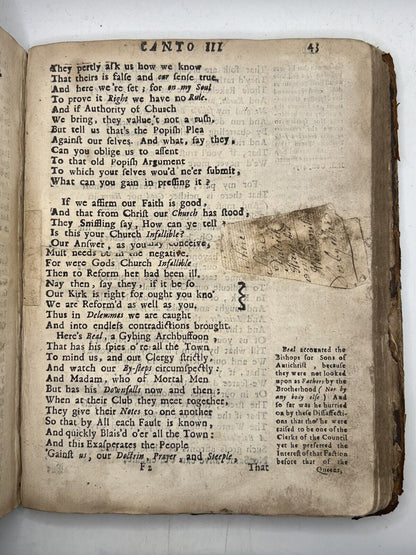 CANTO III
43
They pertly ask us how we know
That theirs is false and our sense true,
And here we're set; for on my Soul
To prove it Right we have no Rule.
And if Authority of Church
We bring, they value't not a rush,
But tell us that's the Popish Plea
Against our selves. And what, say they,
Can you oblige us to assent
To that old Popish Argument
To which your selves wou'd ne'er submit,
What can you gain in pressing it?
If we affirm our Faith is good,
And that from Christ our Church has stood,
They Sniffling say, How can ye tell
Is this your Church Infallible?
Our Answer, as you may conceive,
Must needs be in the negative.
For were Gods Church Infallible
Then to Reform her had been ill.
Nay then, say they, if it be so
Our Kirk is right for ought you kno'
We are Reform'd as well as you,
Thus in Delemmas we are caught
And into endless contradictions brought.
Here's Beal, a Gybing Archbuffoon,
That has his spies o're all the Town
To mind us, and our Clergy strictly
And watch our By-steps circumspectly:
And Madam, who of Mortal Men
But has his Downfalls now and then;
When at their Club they meet together,
They give their Notes to one another
So that by All each Fault is known,
And quickly Blais'd o'er all the Town:
And this Exasperates the People
'Gainst us, our Doctrin, Prayer, and Steeple,
Beal accounted the
Bishops for Sons of
Antichrist, because
they were not looked
upon as Fathers by the
Brotherhood (Nor by
any body else) And
so far was he hurried
on by these Disaffecti-
ons that tho' he were
raised to be one of the
Clerks of the Council
yet he preferred the
Interest of that Faction
before that of the
Queens,
F2
That